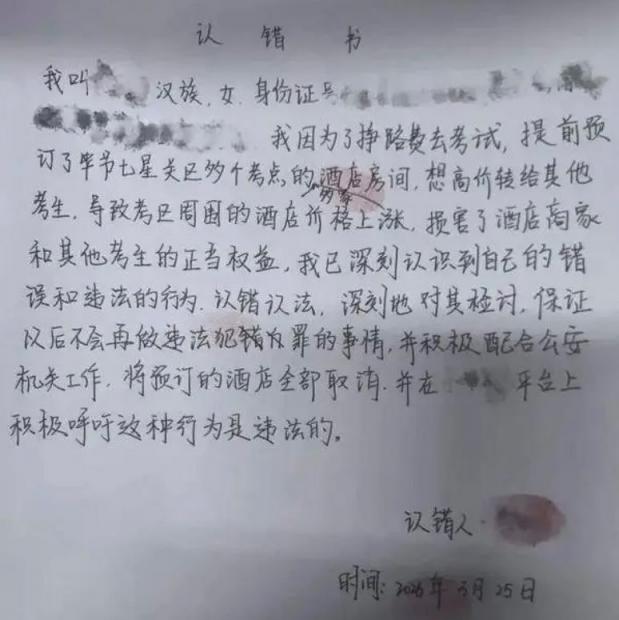 认错书
我叫 汉族,女,身份证号
我因为了挣路费去考试,提前预
订了毕节七星关区多个考点的酒店房间,想高价转给其他
考生,导致考区周围的酒店价格上涨,损害了酒店商家
和其他考生的正当权益,我已深刻认识到自己的错
误和违法的行为.认错认法,深刻地对其检讨,保证
以后不会再做违法犯错为罪的事情,并积极配合公安
机关工作.将预订的酒店全部取消.并在 平台上
积极呼吁这种行为是违法的。
认错人.
时间: 年3月25日